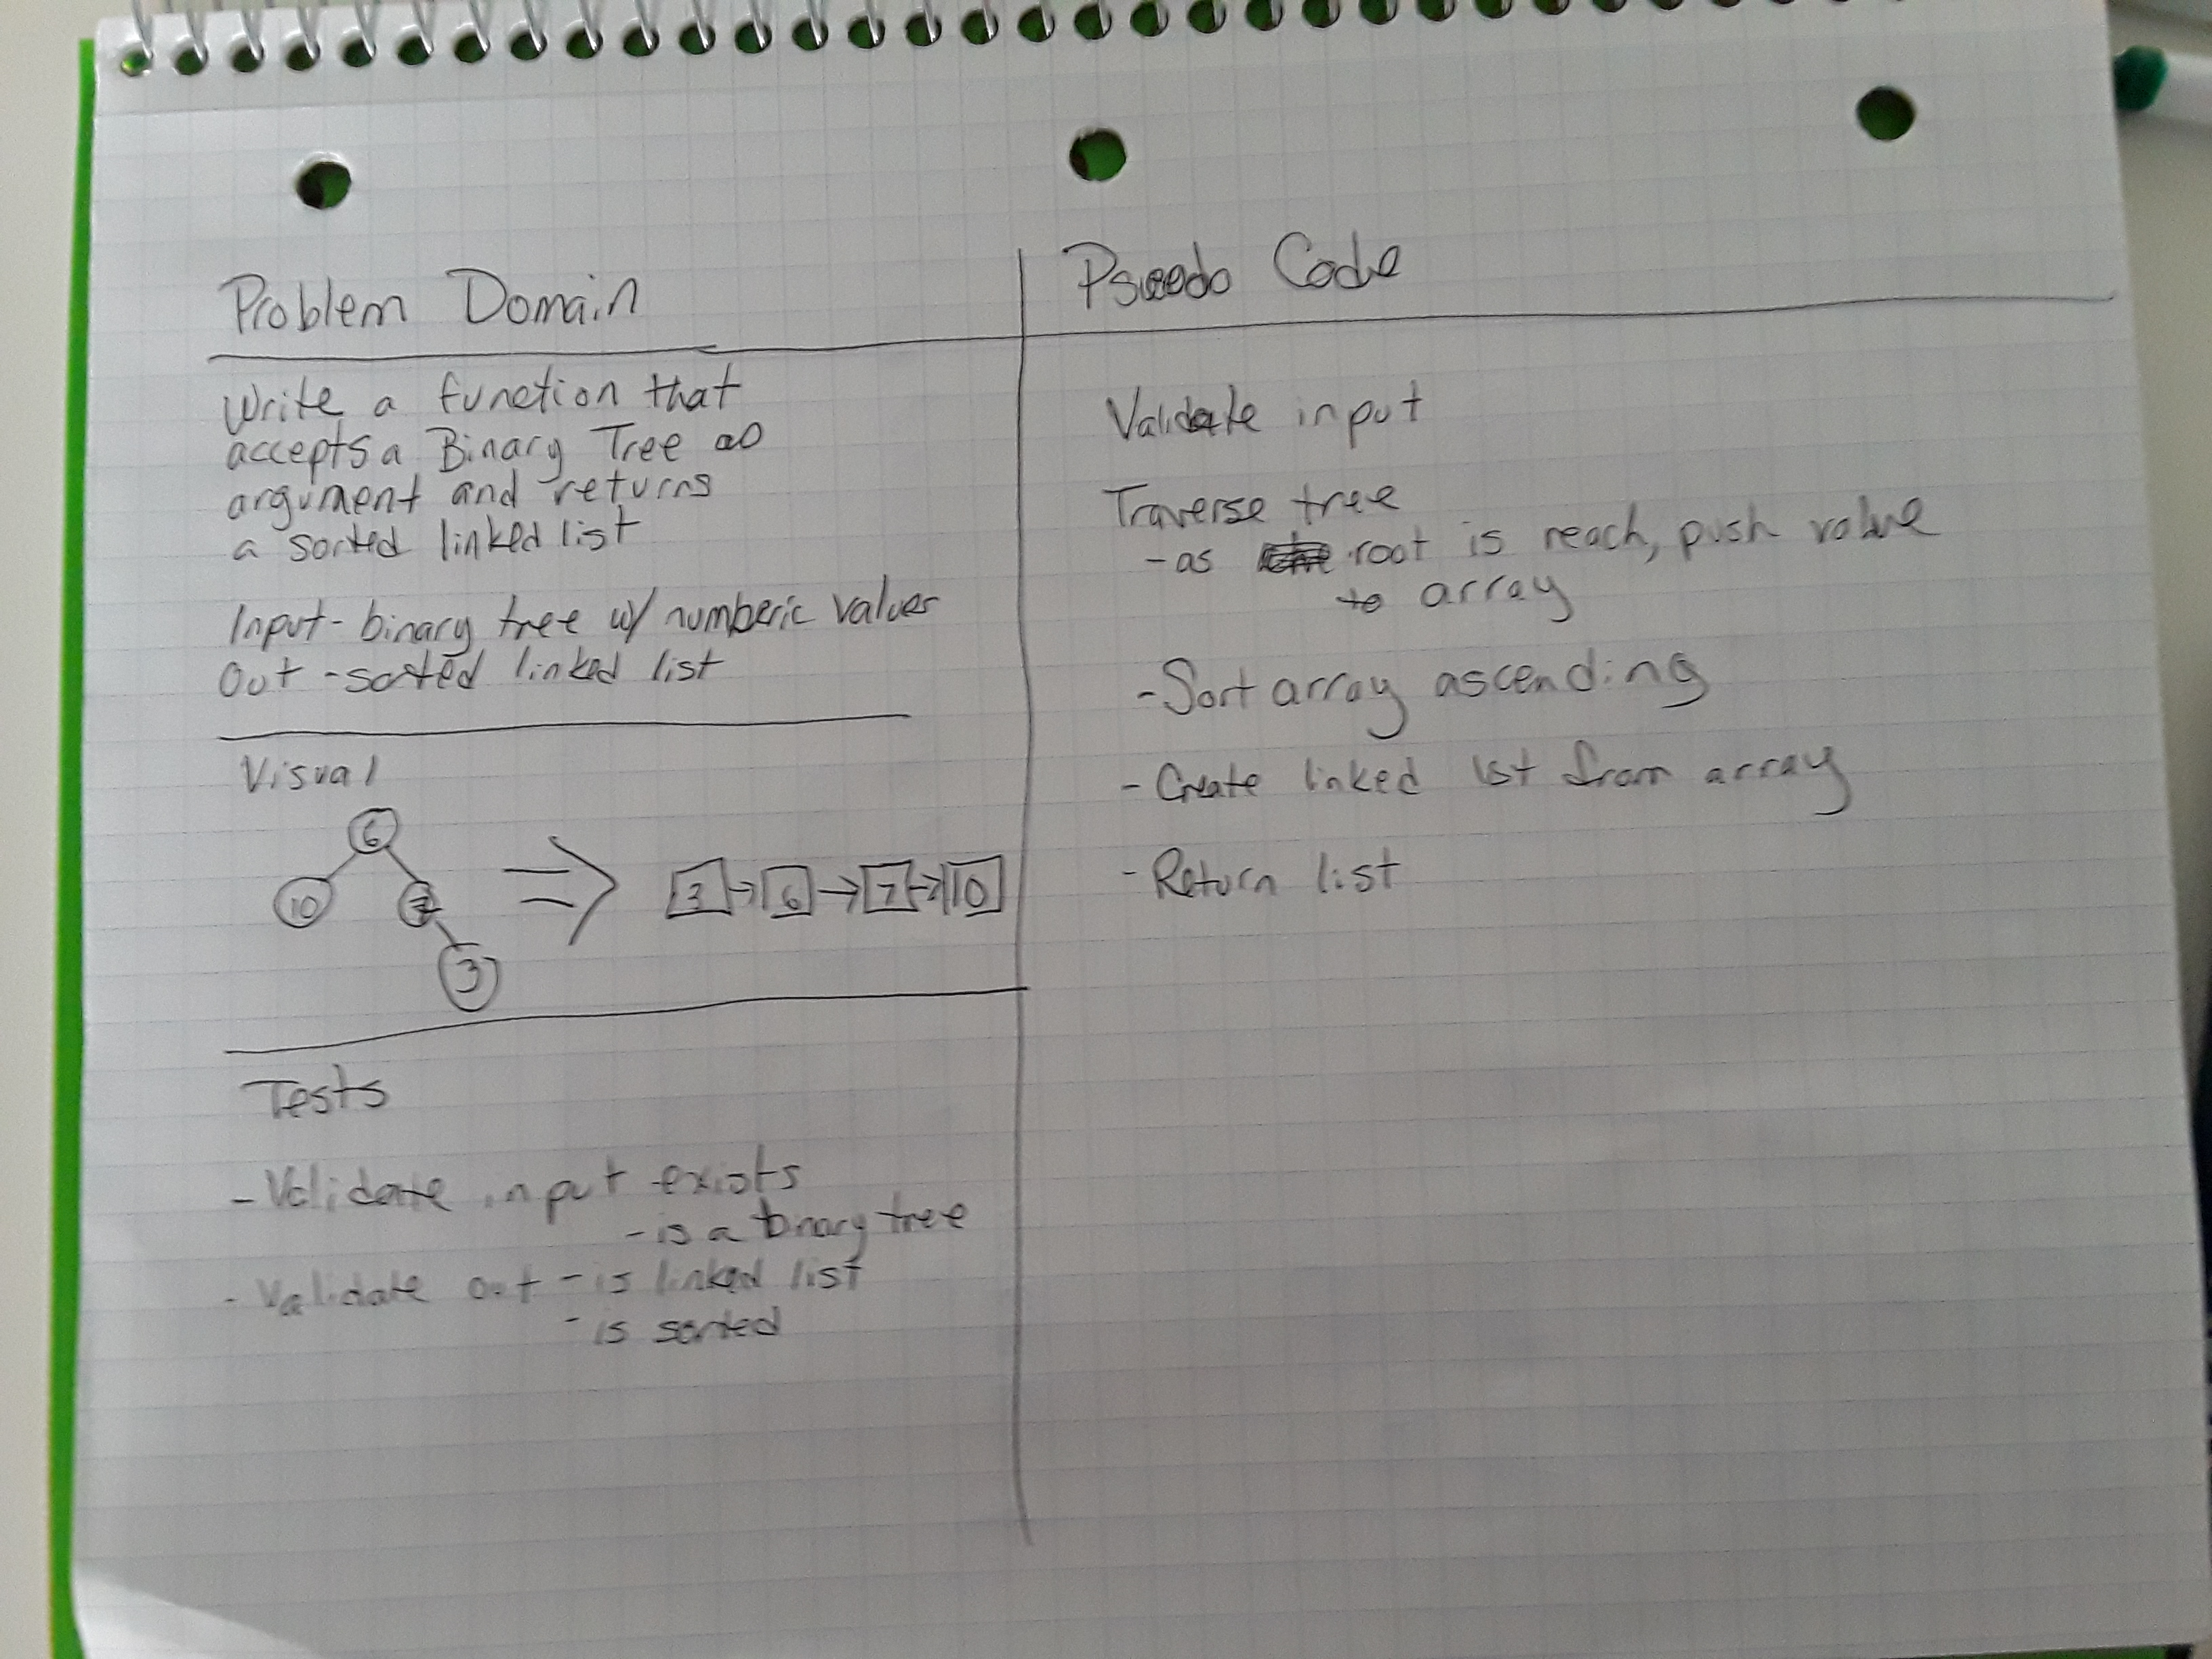 Problem Domain
Write a function that
accepts a Binary Tree as
argument and returns
a sorted linked list
Input - binary tree w/ numberic values
Out - sorted linked list
Visual
6
10 7
3
3 → 6 → 7 → 10
Tests
- Validate input exists
- is a binary tree
- Validate out - is linked list
- is sorted
Pseudo Code
Validate input
Traverse tree
- as root is reach, push value
to array
- Sort array ascending
- Create linked list from array
- Return list